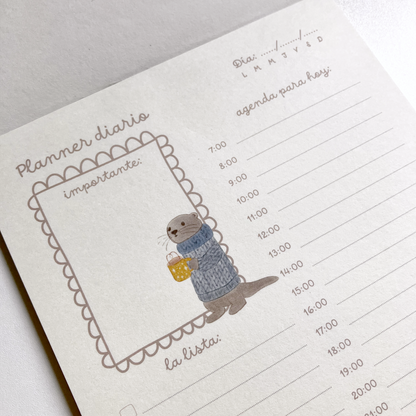 Planner diario
importante:
la lista:
Día: ....../....../......
L M M J V S D
agenda para hoy:
7:00
8:00
9:00
10:00
11:00
12:00
13:00
14:00
15:00
16:00
17:00
18:00
19:00
20:00
21:00